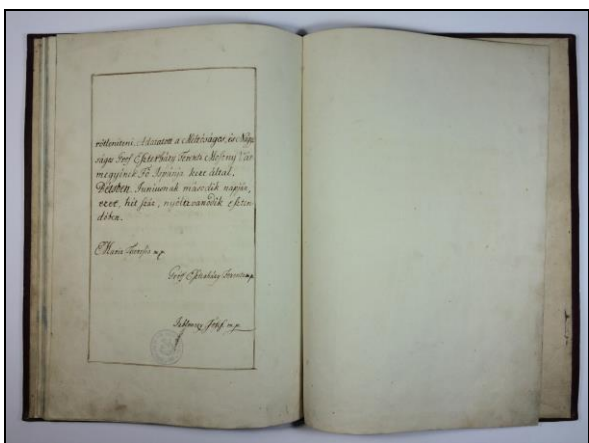 Adatott a Méltóságos, és Nagy
ságos Gróf Eszterházy Ferentz Mosony Vár
megyének Fő Ispánja keze által,
Bétsben Juniusnak második napján,
ezer, hét száz, nyóltzvanodik eszten
dőben.
Maria Theresia m.p.
Gróf Eszterházy Ferentz m.p.
m.p.